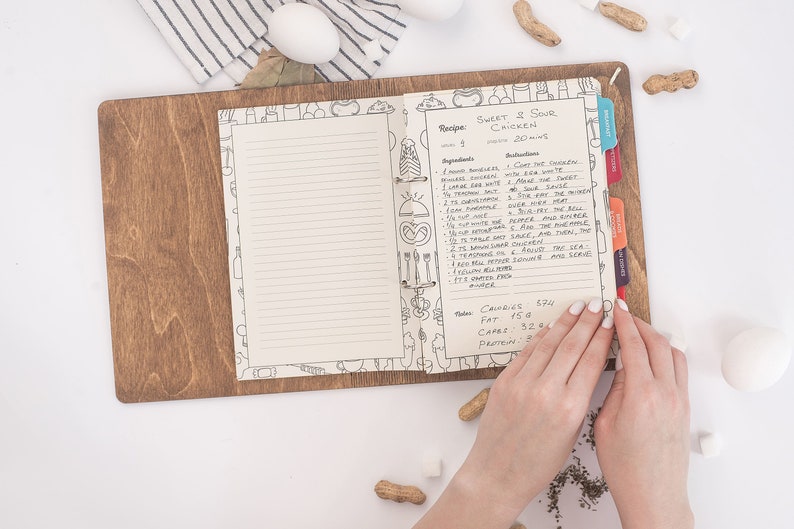 Recipe: SWEET & SOUR
CHICKEN
serves 4 prep time 20 MINS
Ingredients
• 1 POUND BONELESS,
SKINLESS CHICKEN
• 1 LARGE EGG WHITE
• 1/4 TEASPOON SALT
• 2 TS CORNSTARCH
• 1 CAN PINEAPPLE
• 1/4 CUP JUICE
• 1/4 CUP WHITE
• 1/4 CUP KETCHUP
• 1/2 TS TABLE SALT
• 2 TS BROWN SUGAR
• 4 TEASPOONS OIL
• 1 RED BELL PEPPER
• 1 YELLOW BELL PEPPER
• 1 TS GRATED FRESH
GINGER
Instructions
1. COAT THE CHICKEN
WITH EGG WHITE
2. MAKE THE SWEET
SOUR SAUSE
3. STIR-FRY THE CHICKEN
OVER HIGH HEAT
4. STIR-FRY THE BELL
PEPPER AND GINGER
5. ADD THE PINEAPPLE,
SAUCE, AND THEN, THE
CHICKEN
6. ADJUST THE SEA-
SONING AND SERVE
Notes: CALORIES: 374
FAT: 15 G
CARBS: 32
PROTEIN: 3
BREAKFAST
APPETIZERS
BREADS
DISHES